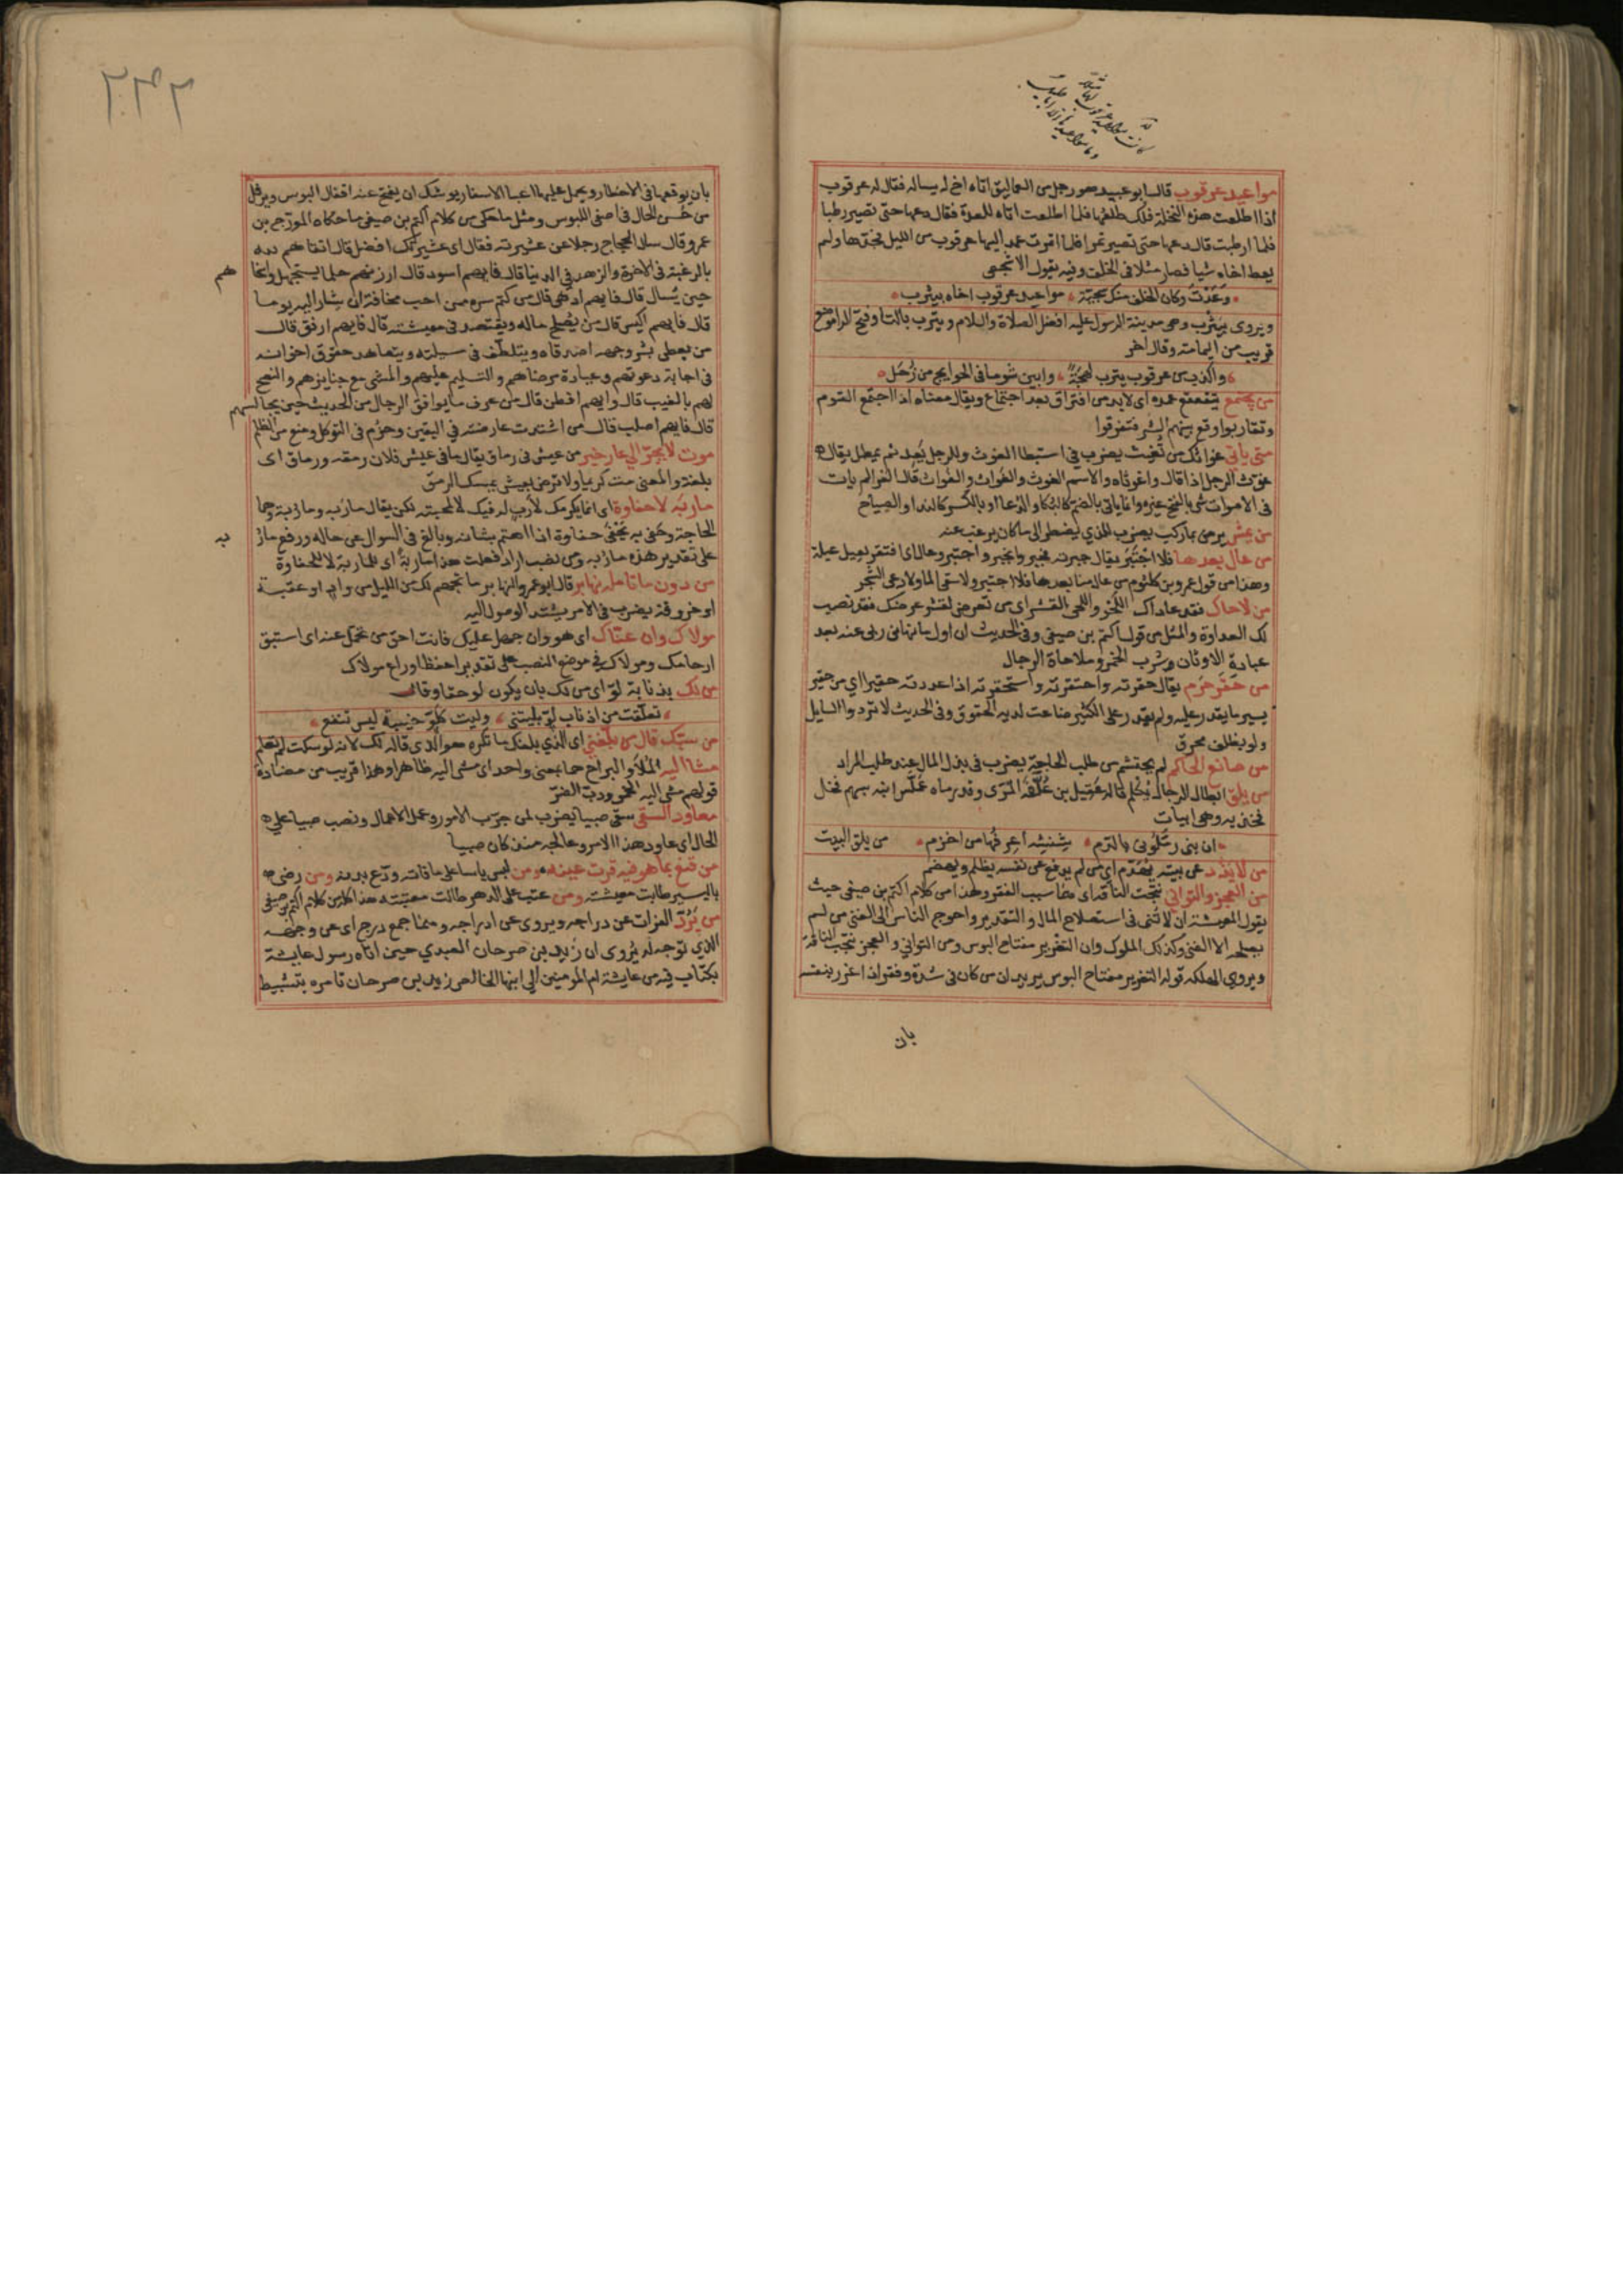 مواعيد عرقوب قال ابو عبيد هو رجل من العماليق اتاه اخ له يساله فقال له عرقوب
اذا اطلعت هذه النخلة فلك طلعها فلما اطلعت اتاه للعدة فقال دعها حتى تصير رطبا
فلما ارطبت قال دعها حتى تصير تمرا فلما اتمرت عمد اليها عرقوب من الليل فجذها ولم
يعط اخاه شيا فصار مثلا في الخلف وفيه يقول الاشجعي
وَعَدْتَ وكان الخلف منك سجيّة مواعيد عرقوب اخاه بيثرب
ويروى بيَثْرِب وهي مدينة الرسول عليه افضل الصلاة والسلام ويترب بالتا وفتح الرا موضع
قريب من اليمامة وقال اخر
واكذب من عرقوب يترب لهجةً وابين شوما في الحوايج من زُحَل
من يجتمع يتقعقع عمده اي لابد من افتراق بعد اجتماع ويقال معناه اذا اجتمع القوم
وتقاربوا وقع بينهم الشر فتفرقوا
متى ياتي غواثك من تُغيث يضرب في استبطا الغوث وللرجل يَعِد ثم يمطل يقال
غوّث الرجل اذا قال واغوثاه والاسم الغوث والغَواث والغُواث قال الفرا لم يات
في الاصوات شي بالفتح غيره وانما ياتي بالضم كالبكا والدعا او بالكسر كالندا والصياح
من يمش يرض بما ركب يضرب للذي يضطر الى ما كان يرغب عنه
من عال بعدها فلا اجتبر يقال جبرته فجبر وانجبر واجتبر وعال اي افتقر يعيل عيلة
وهذا من قول عمرو بن كلثوم من عال منا بعدها فلا اجتبر ولا سقى الما ولا رعى الشجر
من لاحاك فقد عاداك اللحْو واللحي القشر اي من تعرض لقشر عرضك فقد نصب
لك العداوة والمثل من قول اكثم بن صيفي وفي الحديث ان اول ما نهاني ربي عنه بعد
عبادة الاوثان وشرب الخمر وملاحاة الرجال
من حقَر حَرَم يقال حقرته واحتقرته واستحقرته اذا عددته حقيرا اي من حقر
يسيرما يقدر عليه ولم يقدر على الكثير ضاعت لديه الحقوق وفي الحديث لا تردوا السايل
ولو بظلف محرق
من صانع الحاكم لم يحتشم من طلب الحاجة يضرب في بذل المال عند طلب المراد
من يلق ابطال الرجال يُكْلَم قاله عَقيل بن عُلَّفَة المرّى وقد رماه عَمَلَّس ابنه بسهم فحل
فخذيه وهي ابيات
ان بني رمّلوني بالدّم شِنشِنة اعرفها من اخزم من يلق البيت
من لا يَذُد عن بيته يُهَدّم اي من لم يدفع عن نفسه يظلم ويهضم
من العجز والتواني نتجت الفاقة اي هما سبب الفقر وهذا من كلام اكثم بن صيفي حيث
يقول المعيشة ان لا تُنى في استصلاح المال والتقدير واحوج الناس الى الغنى من لم
يصلحه الا الغنى وكذلك الملوك وان التغرير مفتاح البوس ومن التواني والعجز نتجت الفاقة
ويروى الهلكة قوله التغرير مفتاح البوس يريد ان من كان في شدة وفقر اذا غرر بنفسه
بان
٢٣٢
بان يوقعها في الاخطار ويحمل عليها اعبا الاسفار يوشك ان يفتح عنه اقفال البوس ويرفل
من حُسن الحال في اصفى اللبوس ومثل ما حكى من كلام اكثم بن صيفي ما حكاه المورّج بن
عمرو قال سال الحجاج رجلا عن عشيرته فقال اي عشيرتك افضل قال اتقاهم لله
بالرغبة في الاخرة والزهد في الدنيا قال فايهم اسود قال ارزنهم حلما حين يستجهل واسخاهم
حين يُسال قال فايهم ادهى قال من كتم سره ممن احب مخافة ان يشار اليه يوما
قال فايهم اكيس قال من يُصلح ماله ويقتصد في معيشته قال فايهم ارفق قال
من يعطي بشر وجهه اصدقاه ويتلطف في مسيلته ويتعاهد حقوق اخوانه
في اجابة دعوتهم وعيادة مرضاهم والتسليم عليهم والمشي مع جنايزهم والنصح
لهم بالغيب قال وايهم افطن قال من عرف ما يوافق الرجال من الحديث حين يجالسهم
قال فايهم اصلب قال من اشتدت عارضته في اليقين وحزم في التوكل ومنع من الظلم
موت لا يجرّ الى عار خير من عيش في رماق يقال ما في عيش فلان رمقه ورماق اي
بلغة والمعنى مت كريما ولا ترض بعيش يمسك الرمق
ماربَة لا حفاوة اي انما يكرمك لأَرَب له فيك لا لمحبته لك يقال ماربة وماربة وهما
الحاجة وحفي به يحفى حفاوة اذا اهتم بشانه وبالغ في السوال عن حاله ورفع ماربه
على تقدير هذه ماربة ومن نصب اراد فعلت هذا ماربةً اي للماربة لا للحفاوة
من دون ما تامله نهابر قال ابو عمرو النهابر ما تجهم لك من الليل من واد او عقبة
او خروقة يضرب في الامر يشتد الوصول اليه
مولاك وان عنّاك اي هو وان جهل عليك فانت احق من تحمّل عنه اي استبق
ارحامك ومولاك في موضع النصب على تقدير احفظ او راع مولاك
من لك بذنابة لوّ اي من لك بان يكون لو حقا وقال
تعلّقت من اذناب لوّ بليتني وليت كلوّ خيبة ليس تنفع
من سبّك قال من بلّغني اي الذي بلغك ما تكره هو الذي قاله لك لانه لو سكت لم تعلم
مشا اليه المَلَا والبراح هما بمعنى واحد اي مشى اليه ظاهرا وهذا قريب من مضادة
قولهم مشى اليه الخمر ودبّ الضرّ
معاود السقي سقى صبيا يضرب لمن جرّب الامور وعمل الاعمال ونصب صبيا على
الحال اي عاود هذا الامر وعالجه منذ كان صبيا
من قنع بما هو فيه قرت عينه ومن لم ياس على ما فاته ودّع بدنه ومن رضى
باليسير طابت معيشته ومن عتب على الدهر طالت معتبته هذا كله من كلام اكثم بن صيفي
من يَرُدّ الفرات عن دراجه ويروى عن ادراجه وهما جمع درج اي عن وجهه
الذي توجه له يُروى ان زيد بن صوحان العبدي حين اتاه رسول عايشة
بكتاب فيه من عايشة ام المومنين الى ابنها الخالص زيد بن صوحان تامره بتثبيط